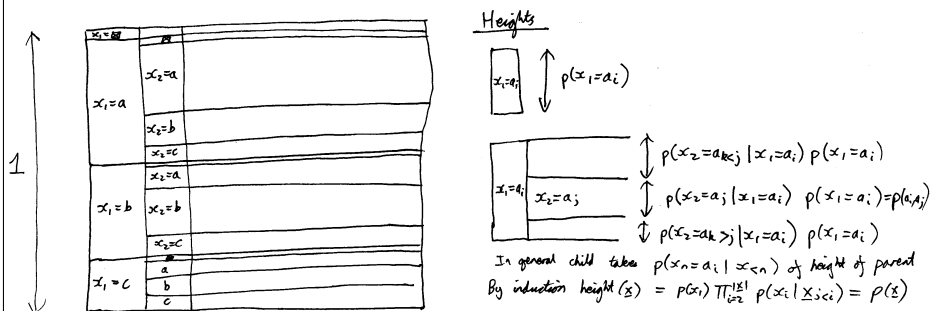 1
x₁=
x₁=a
x₂=a
x₂=b
x₂=c
x₁=b
x₂=a
x₂=b
x₂=c
x₁=c
a
b
c
Heights
x₁=aᵢ
p(x₁=aᵢ)
x₁=aᵢ
x₂=aⱼ
p(x₂=a_{k<j} | x₁=aᵢ) p(x₁=aᵢ)
p(x₂=aⱼ | x₁=aᵢ) p(x₁=aᵢ)=p(aᵢ,aⱼ)
p(x₂=a_{k>j} | x₁=aᵢ) p(x₁=aᵢ)
In general child takes p(xₙ=aᵢ | x_{<n}) of height of parent
By induction height(x) = p(x₁) ∏_{i=2}^{|x|} p(xᵢ | x_{j<i}) = p(x)